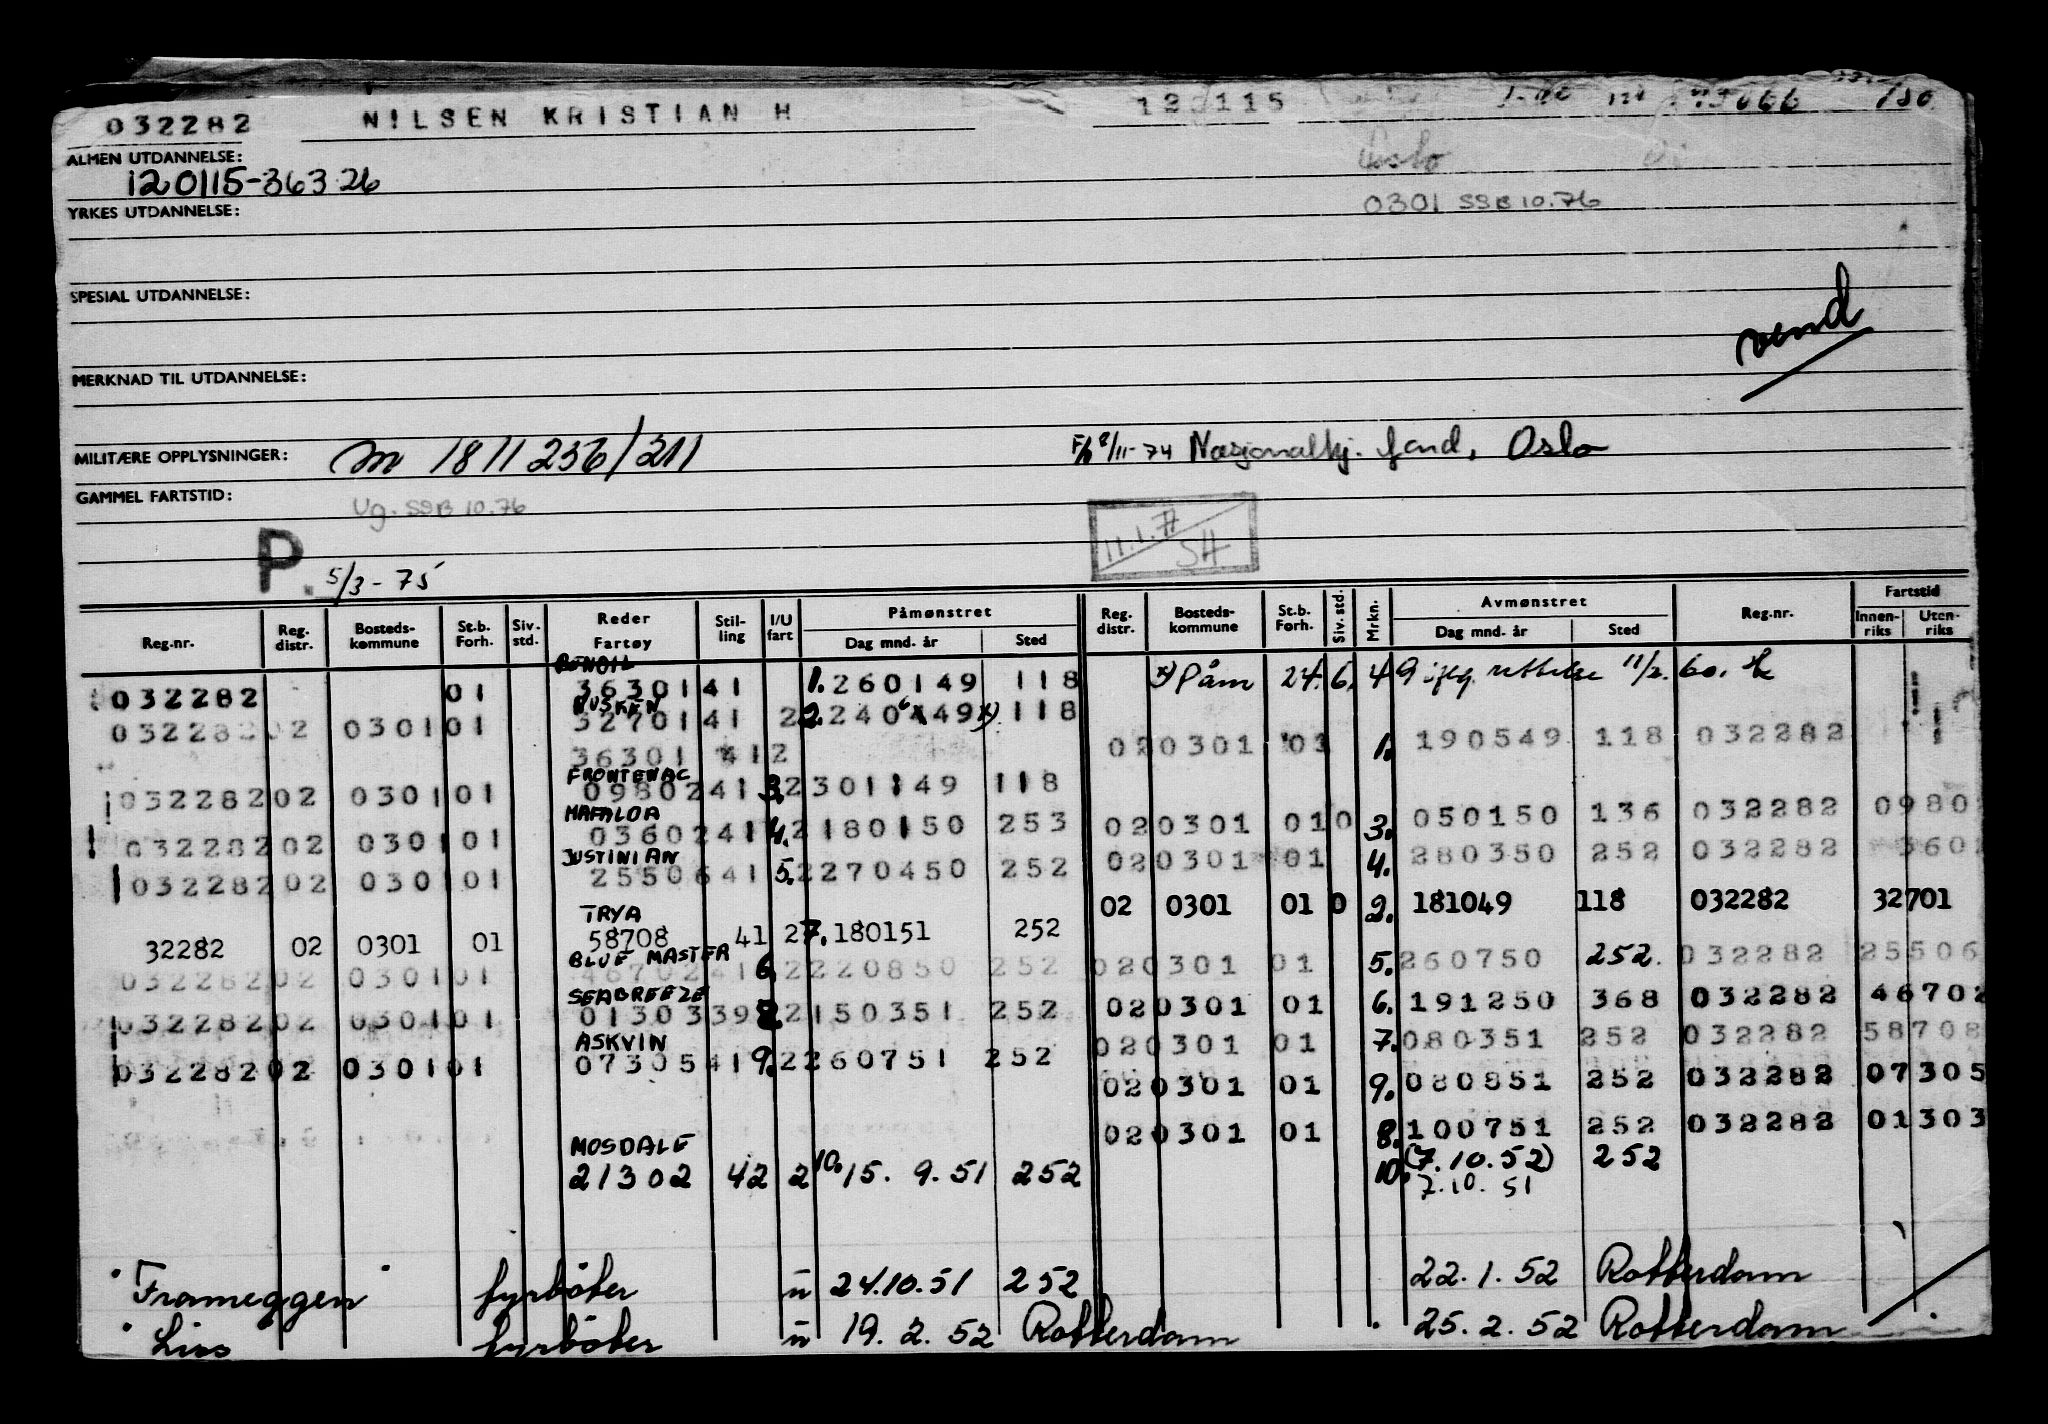 032282 NILSEN KRISTIAN H 120115
ALMEN UTDANNELSE:
120115-363 26
Oslo
YRKES UTDANNELSE:
0301 SSB 10.76
SPESIAL UTDANNELSE:
vend
MERKNAD TIL UTDANNELSE:
MILITÆRE OPPLYSNINGER: m 1811236/211 F/b 8/11-74 Nasjonalhj. fond, Oslo
GAMMEL FARTSTID:
Ug. SSB 10.76
11.1.77
SH
P. 5/3-75
Reg.nr. Reg. distr. Bosteds-kommune St.b. Forh. Siv. std. Reder Fartøy Stil-ling I/U fart Påmønstret Dag mnd. år Sted Reg. distr. Bosteds-kommune St.b. Forh. Siv. std. Mrkn. Avmønstret Dag mnd. år Sted Reg.nr. Fartstid Innen-riks Uten-riks
032282 01 36301 41 1. 260149 118 x) Påm 24.6.49 rettelse 11/2.60.
HUSKEN
032282 02 0301 01 32701 41 2 2. 240649 x) 118
36301 41 2 02 0301 01 1. 190549 118 032282
FRONTENAC
032282 02 0301 01 09802 41 3. 2 301149 118
MAFALDA
02 0301 01 0 3. 050150 136 032282 0980
032282 02 0301 01 03602 41 4. 2 180150 253
JUSTINIAN
02 0301 01 4. 280350 252 032282 360
032282 02 0301 01 25506 41 5. 2 270450 252
TRYA
02 0301 01 0 2. 181049 118 032282 32701
32282 02 0301 01 58708 41 2 7. 180151 252
BLUE MASTER
032282 02 0301 01 46702 41 6. 2 220850 252 02 0301 01 5. 260750 252. 032282 25506
SEABREEZE
02 0301 01 6. 191250 368 032282 46702
032282 02 0301 01 01303 39 8. 2 150351 252
ASKVIN
02 0301 01 7. 080351 252 032282 58708
032282 02 0301 01 07305 41 9. 2 260751 252
02 0301 01 9. 080851 252 032282 07305
02 0301 01 8. 100751 252 032282 01303
MOSDALE
21302 42 2 10. 15. 9. 51 252 10. (7.10.52) 252
7.10. 51
"Frameggen" fyrbøter u 24.10.51 252 22.1.52 Rotterdam
fyrbøter u 19. 2. 52 Rotterdam 25. 2. 52 Rotterdam